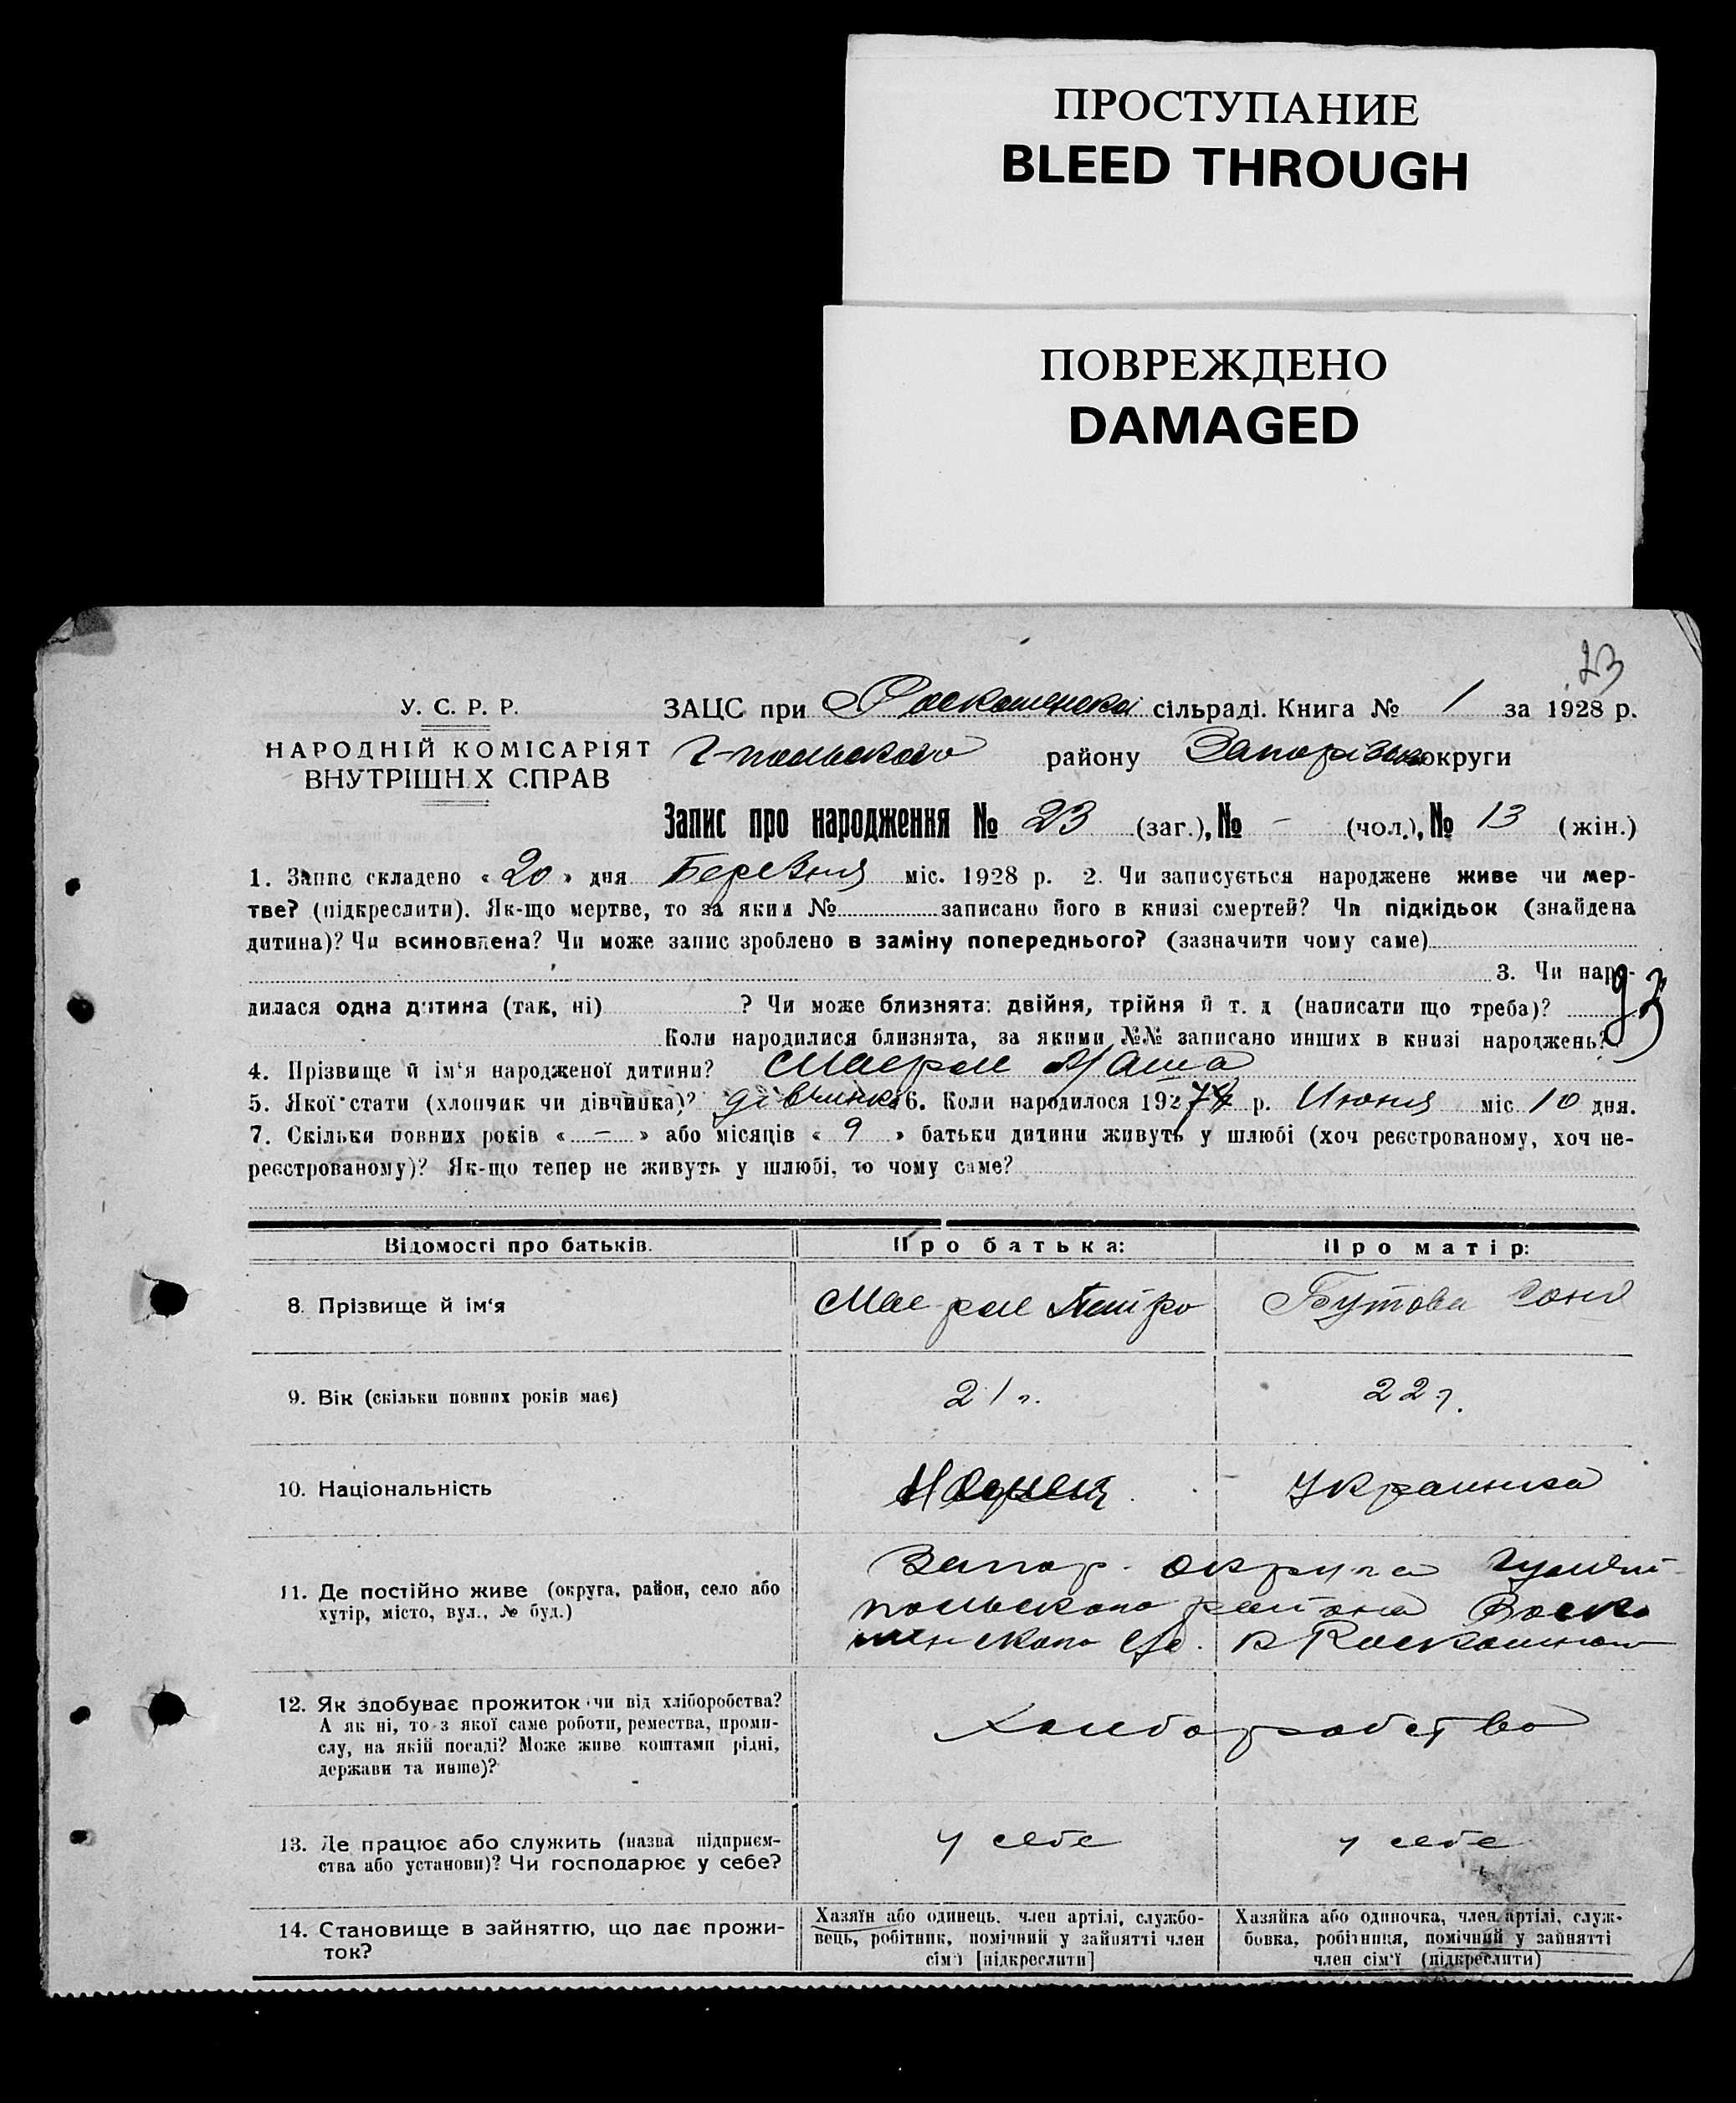 ПРОСТУПАНИЕ
BLEED THROUGH
ПОВРЕЖДЕНО
DAMAGED
23
У. С. Р. Р.
НАРОДНІЙ КОМІСАРІЯТ
ВНУТРІШН.Х СПРАВ
ЗАЦС при сільраді. Книга № 1 за 1928 р.
району округи
Запис про народження № 23 (заг.), № - (чол.), № 13 (жін.)
1. Запис складено « 20 » дня Березня міс. 1928 р. 2. Чи записується народжене живе чи мер-
тве? (підкреслити). Як-що мертве, то за яким № записано його в книзі смертей? Чи підкідьок (знайдена
дитина)? Чи всиновлена? Чи може запис зроблено в заміну попереднього? (зазначити чому саме)
3. Чи наро-
дилася одна дитина (так, ні) ? Чи може близнята: двійня, трійня й т. д (написати що треба)?
Коли народилися близнята, за якими №№ записано инших в книзі народжень?
4. Прізвище й ім'я народженої дитини?
5. Якої стати (хлопчик чи дівчинка)? дівчинка 6. Коли народилося 1927 р. Июня міс 10 дня.
7. Скільки повних років « - » або місяців « 9 » батьки дитини живуть у шлюбі (хоч реєстрованому, хоч не-
реєстрованому)? Як-що тепер не живуть у шлюбі, то чому саме?
Відомості про батьків. Про батька: Про матір:
8. Прізвище й ім'я Бутова Соня
9. Вік (скільки повних років має) 21 г. 22 г.
10. Національність Украинка
11. Де постійно живе (округа, район, село або
хутір, місто, вул., № буд.)
Запор. округа
района
12. Як здобуває прожиток чи від хліборобства?
А як ні, то з якої саме роботи, ремества, проми-
слу, на якій посаді? Може живе коштами рідні,
держави та инше)?
13. Де працює або служить (назва підприєм-
ства або установи)? Чи господарює у себе?
у себе у себе
14. Становище в зайняттю, що дає прожи-
ток?
Хазяїн або одинець, член артілі, службо-
вець, робітник, помічний у зайнятті член
сім'ї [підкреслити]
Хазяйка або одиночка, член артілі, служ-
бовка, робітниця, помічний у зайнятті
член сім'ї (підкреслити)